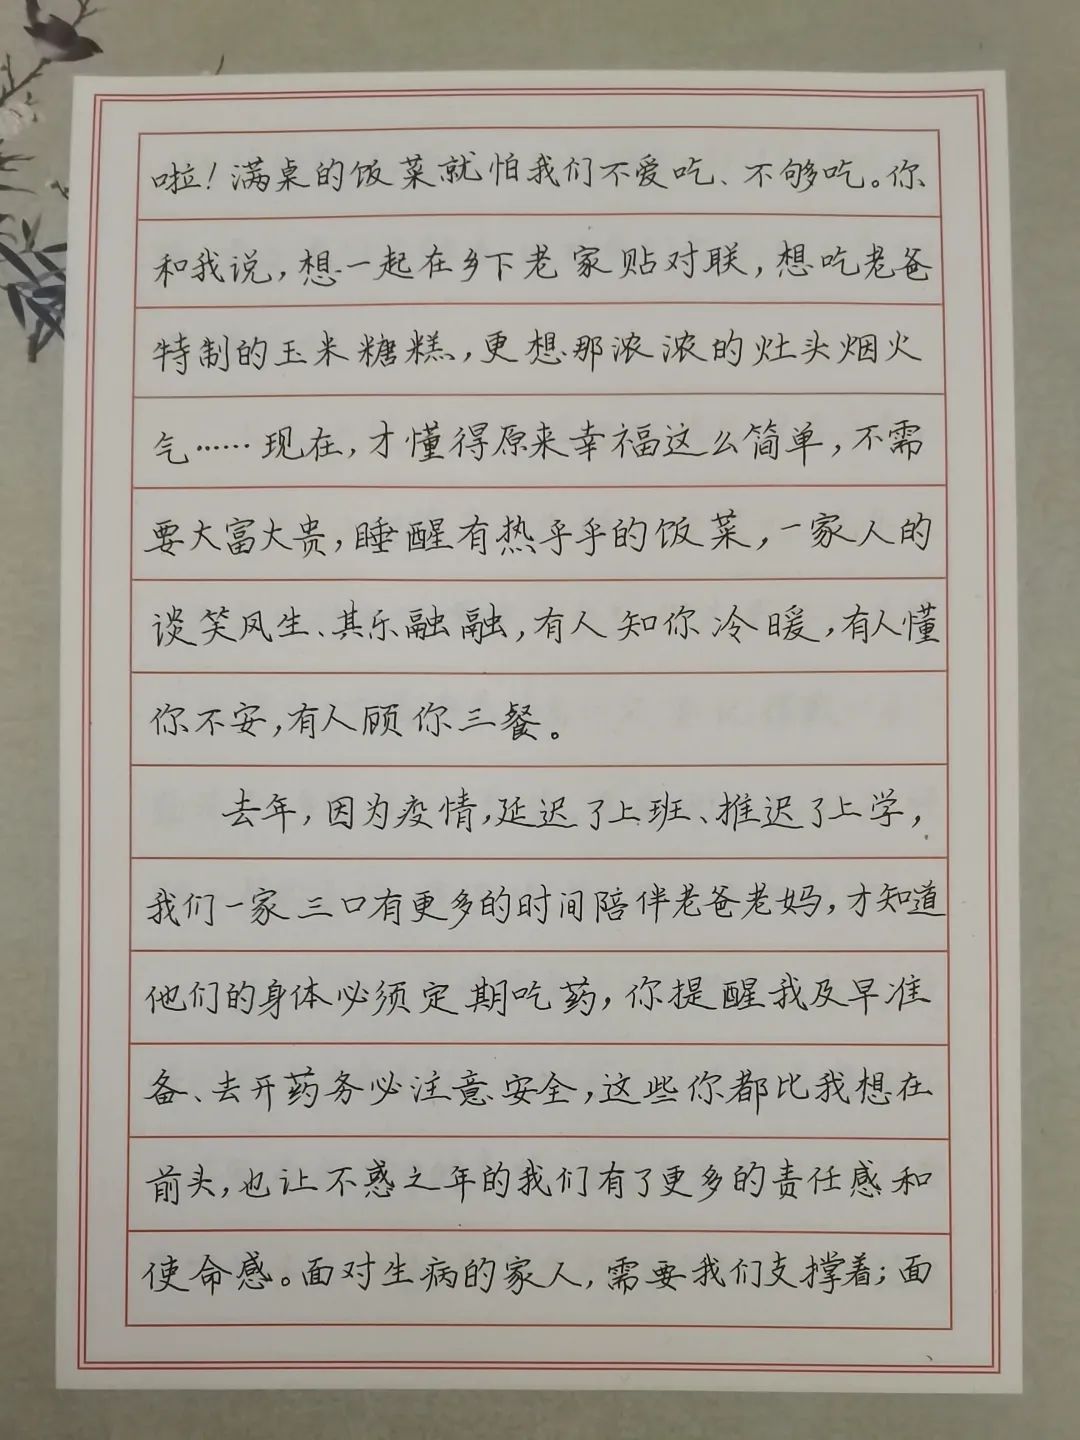 啦！满桌的饭菜就怕我们不爱吃、不够吃。你
和我说，想一起在乡下老家贴对联，想吃老爸
特制的玉米糖糕，更想那浓浓的灶头烟火
气……现在，才懂得原来幸福这么简单，不需
要大富大贵，睡醒有热乎乎的饭菜，一家人的
谈笑风生、其乐融融，有人知你冷暖，有人懂
你不安，有人顾你三餐。
去年，因为疫情，延迟了上班、推迟了上学，
我们一家三口有更多的时间陪伴老爸老妈，才知道
他们的身体必须定期吃药，你提醒我及早准
备、去开药务必注意安全，这些你都比我想在
前头，也让不惑之年的我们有了更多的责任感和
使命感。面对生病的家人，需要我们支撑着；面